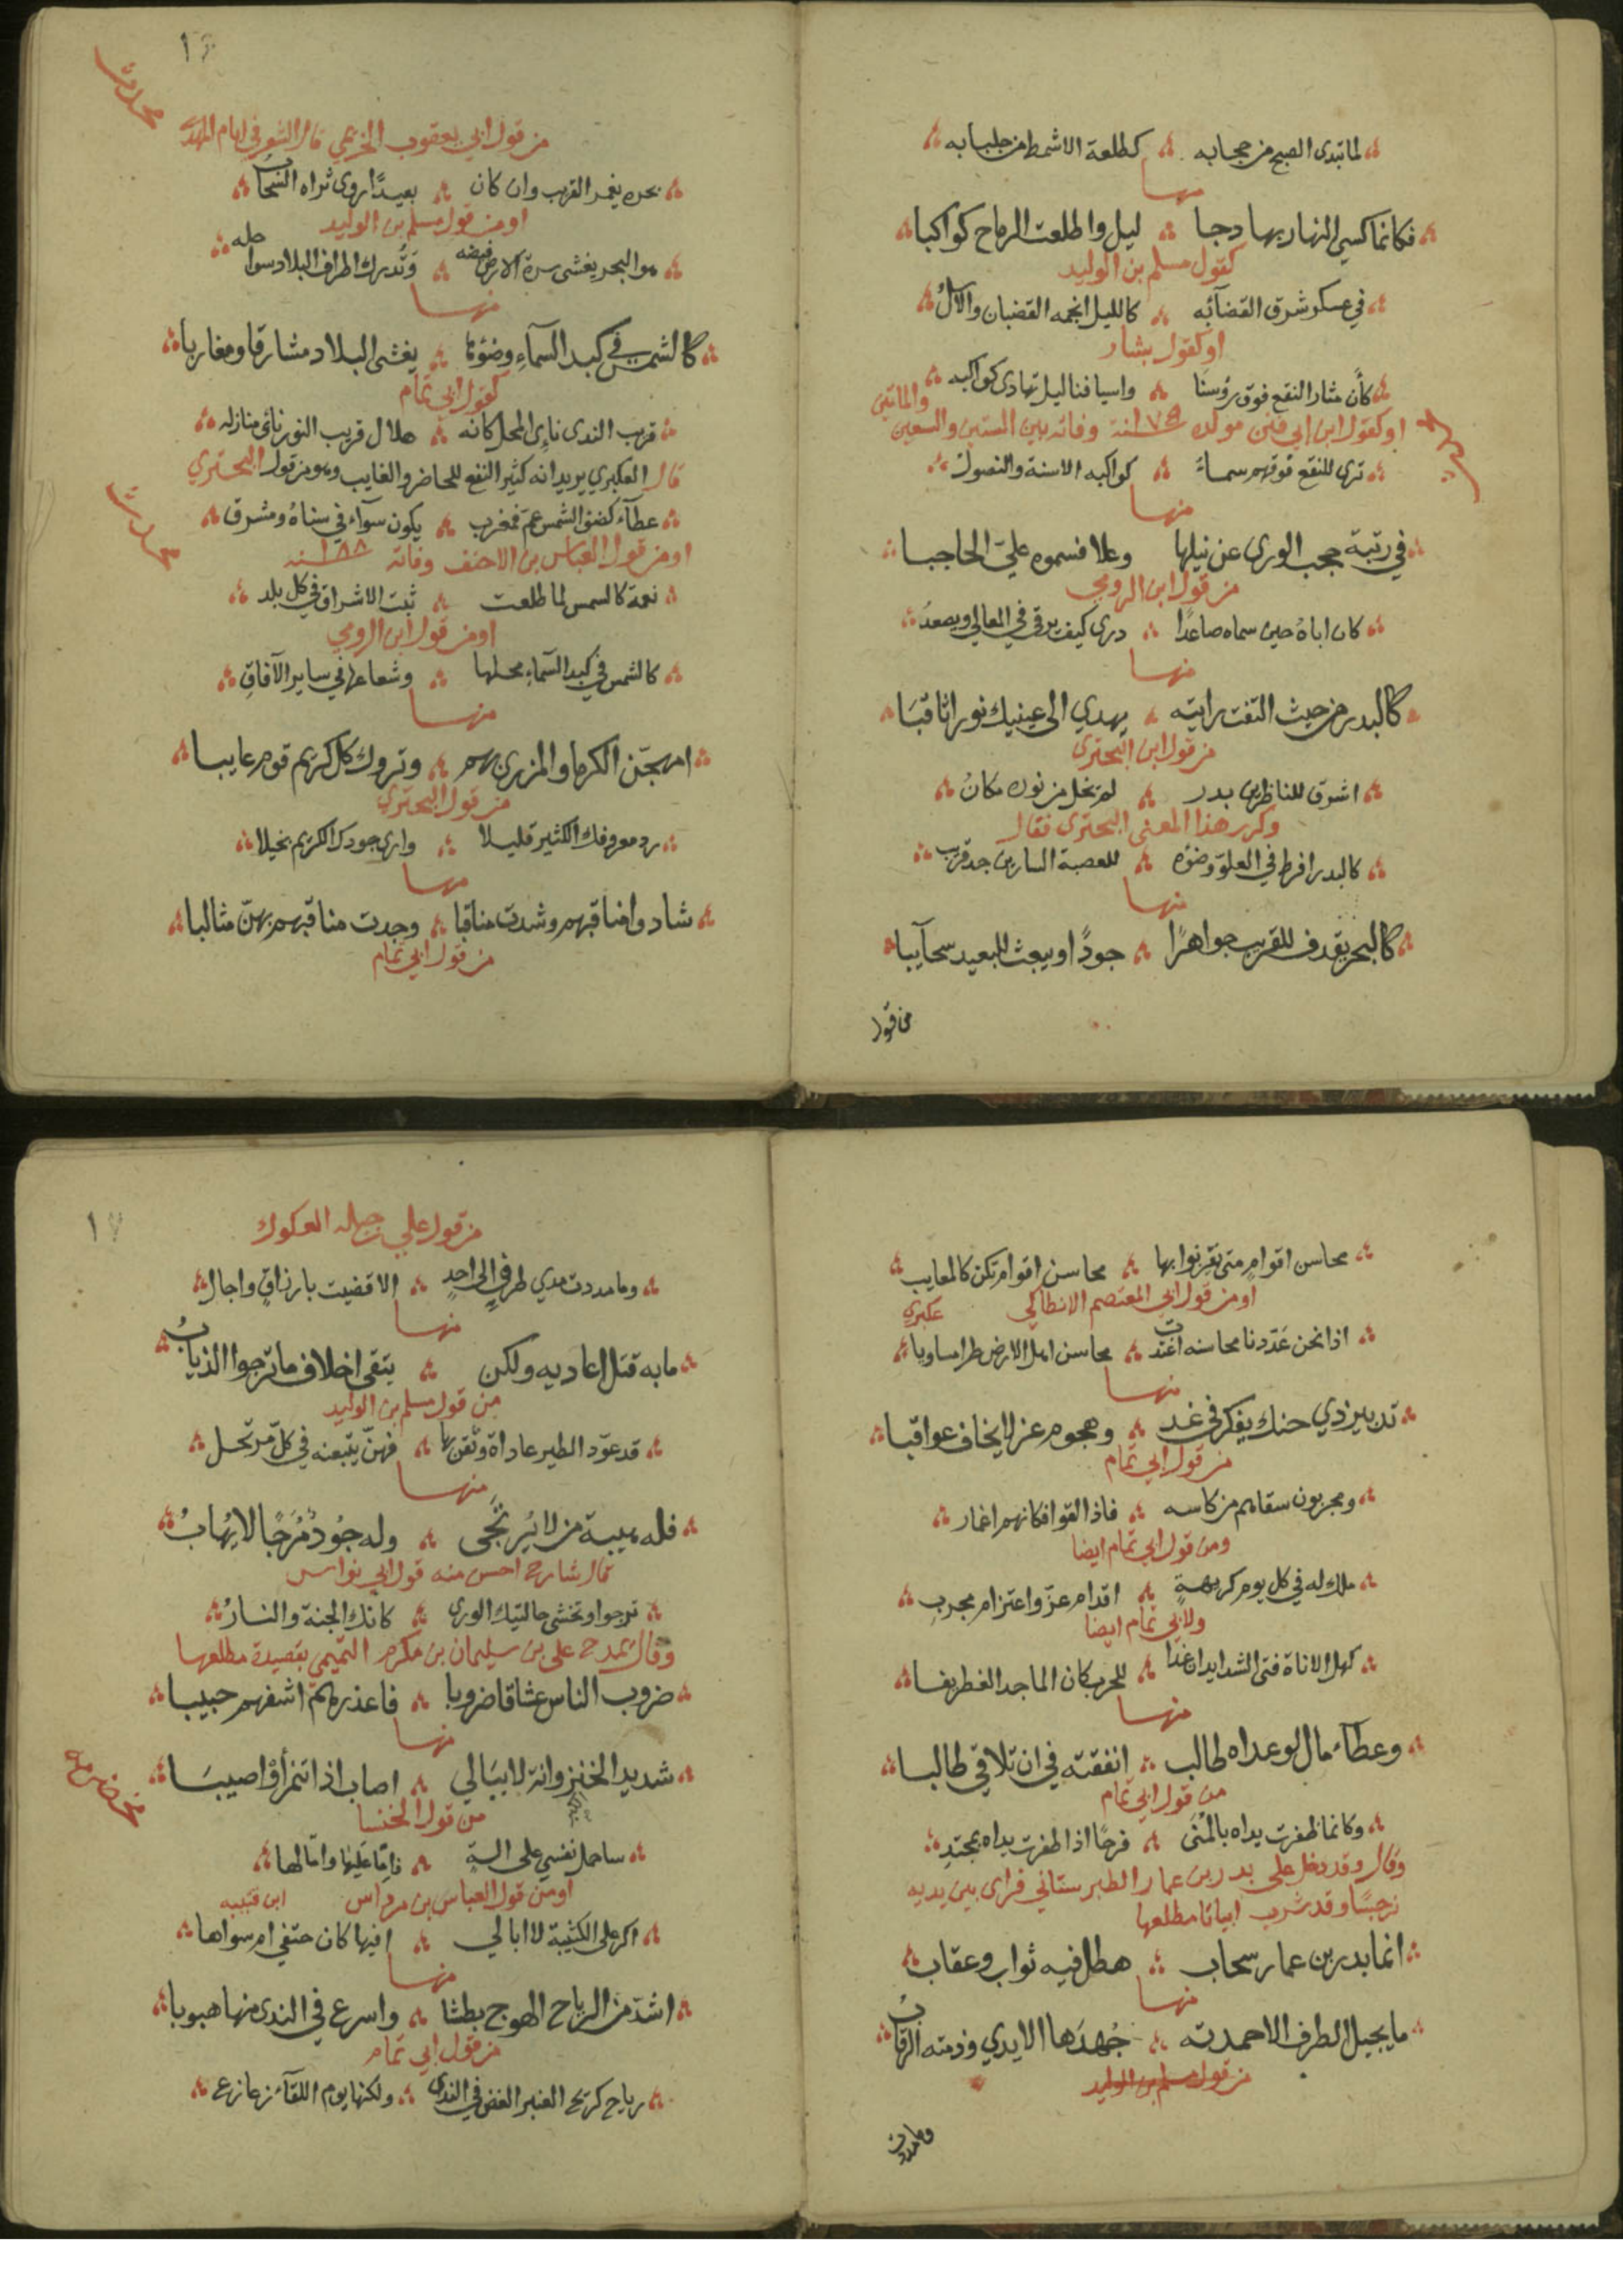 لما تبدى الصبح من حجابه ؞ كطلعة الاشمط من جلبابه
منها
فكانما كسي النهار بها دجا ؞ ليل واطلعت الرماح كواكبا
كقول مسلم بن الوليد
في عسكر شرق القضآئه ؞ كالليل انجمه القضبان والاسل
او كقول بشار
كأن مثار النقع فوق رؤسنا ؞ واسيافنا ليل تهادى كواكبه
او كقول ابن ابي فنن مولده ١٧٥ سنة وفاته بين الستين والسبعين والماتين
ترى للنقع فوقهم سماء ؞ كواكبه الاسنة والنصول
منها
في رتبة حجب الورى عن نيلها وعلا فسموه عليّ الحاجبا
من قول ابن الرومي
كان اباه حين سماه صاعدًا ؞ درى كيف يرقى في المعالي ويصعدُ
منها
كالبدر من حيث التفت رايته ؞ يهدي الى عينيك نورا ثاقبَا
من قول ابن البحتري
اشرق للناظرين بدر ؞ لم يخل من نوره مكانُ
وكرر هذا المعنى البحتري فقال
كالبدر افرط في العلوّ وضوّه ؞ للعصبة السارين جد قريب
منها
كالبحر يقدف للقريب جواهرًا ؞ جودًا ويبعث للبعيد سحآيبا
من قول
١٦
من قول ابي يعقوب الخزيمي قال الشعر في ايام المهدي
بحره يغمر القريب وان كان ؞ بعيدًا روى ثراه السحاب
او من قول مسلم بن الوليد
هو البحر يغشى سرة الارض فيضه ؞ وتُدرك اطراف البلاد سواحله
منها
كالشمس في كبد السمآء وضؤها ؞ يغشى البلاد مشارقا ومغاربا
كقول ابي تمام
قريب الندى نايي المحل كانه ؞ هلال قريب النور نائى منازله
قال العكبري يريد انه كثير النفع للحاضر والغايب وهو من قول البحتري
عطآء كضوء الشمس عمّ فمغرب ؞ يكون سوآء في سناهُ ومشرق
او من قول العباس بن الاحنف وفاته ١٨٨ سنه
نعمة كالسمس لما طلعت ؞ ثبت الاشراق في كل بلد
او من قول ابن الرومي
كالشمس في كبد السمآء محلها ؞ وشعاعها في ساير الآفاقِ
منها
امهجّن الكرما والمزري بهم ؞ وتروك كل كريم قوم عايبا
من قول البحتري
رد معروفك الكثير قليلا ؞ وارى جودك الكريم بخيلا
منها
شادوا مناقبهم وشدت مناقبا ؞ وجدت مناقبهم بهنّ مثالبا
من قول ابي تمام
محاسن اقوامٍ متى تقرنوا بها ؞ محاسن اقوام تكن كالمعايب
او من قول ابي المعتصم الانطاكي عكبري
اذا نحن عَدّدنا محاسنه اغتدت ؞ محاسن اهل الارض طرا مساويا
منها
تدبير ذي حنك يفكر في غد ؞ وهجوم عز لا يخاف عواقبا
من قول ابي تمام
ومجربون سقاهم من كاسه ؞ فاذا القوا فكانهم اغمار
ومن قول ابي تمام ايضا
ملك له في كل يوم كريهةٍ ؞ اقدام عزّ واعتزام مجربِ
ولابي تمام ايضا
كهل الاناة فتى الشدايد ان غدا ؞ للحرب كان الماجد الغطريفا
منها
وعطآء مال لو عداه طالب ؞ انفقته في ان تلاقي طالبا
من قول ابي تمام
وكانما ظفرت يداه بالمُنَى ؞ فرحًا اذا ظفرت يداه بمجتدِ
وقال وقد دخل علي بدر بن عمار الطبرستاني فراى بين يديه
نرجسًا وقد شرب ابياتا مطلعها
انما بدر بن عمار سحاب ؞ هطل فيه ثواب وعقاب
منها
ما يجيل الطرف الا حمدته ؞ جُهدَها الايدي وذمته الرقابُ
من قول مسلم بن الوليد
وما مددت
١٧
من قول علي بن جبله العكوك
وما مددت مدي طرفٍ الى احدٍ ؞ الا قضيت بارزاقٍ واجال
منها
ما به قتل اعاديه ولكن ؞ يتقي اخلاف ما ترجوا الذيابُ
من قول مسلم بن الوليد
قد عوّد الطير عاداة وثقن بها ؞ فهنّ يتبعنه في كلّ مرتحل
منها
فله هيبة من لا يُرتجى ؞ وله جُودُ مُرَجًا لا يُهابُ
قال شارح احسن منه قول ابي نواس
ترجوا وتخشى حالتيك الورى ؞ كانك الجنة والنارُ
وقال يمدح علي بن سليمان بن مكرم التميمي بقصيدة مطلعها
ضروب الناس عشاقا ضروبا ؞ فاعذرهم اشفهم حبيبا
منها
شديد الخنزوانة لا يبَالي ؞ اصاب اذا تنمرأوْ اصيبَا
من قول الخنسا
ساحمل نفسي على الة ؞ فامّا عَليَها وامّا لها
او من قول العباس بن مرداس ابن قتيبه
اكر على الكتيبة لا ابالي ؞ افيها كان حتفي ام سواها
منها
اشدّ من الرياح الهوج بطشا ؞ واسرع في الندى منها هبوبا
من قول ابي تمام
رياح كريح العنبر الغض في الندى ؞ ولكنها يوم اللقآء زعازع